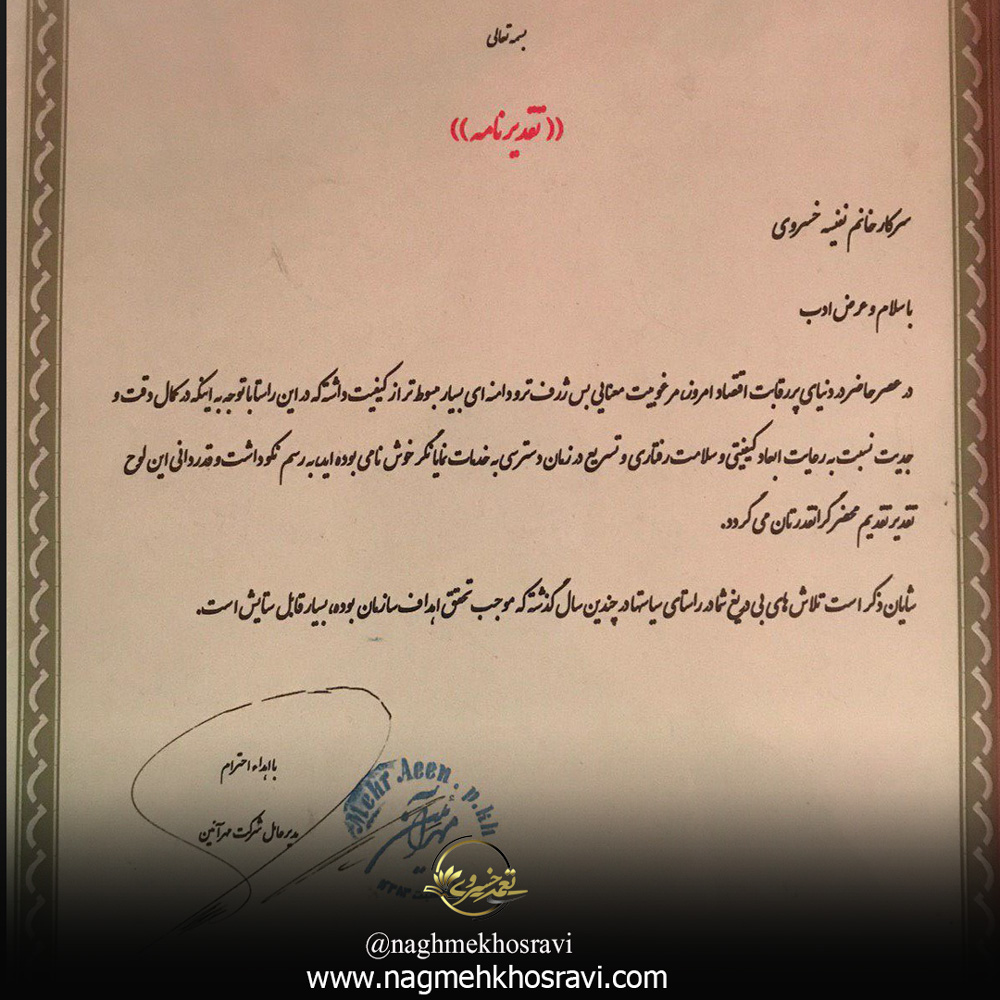 بسمه تعالی
((تقدیرنامه))
سرکار خانم نفیسه خسروی
با سلام و عرض ادب
در عصر حاضر در دنیای پر رقابت اقتصاد امروز، مرغوبیت معنایی بس ژرف تر و دامنه ای بسیار مبسوط تر از کیفیت داشته که در این راستا با توجه به اینکه در کمال دقت و
جدیت نسبت به رعایت ابعاد کیفیتی و سلامت رفتاری و تسریع در زمان دسترسی به خدمات نمایانگر خوش نامی بوده اید، به رسم نکوداشت و قدردانی این لوح
تقدیر تقدیم محضر گرانقدرتان می گردد.
شایان ذکر است تلاش های بی دریغ شما در راستای سیاستها در چندین سال گذشته که موجب تحقق اهداف سازمان بوده، بسیار قابل ستایش است.
با اهداء احترام
مدیرعامل شرکت مهرآئین
Mehr Aeen . p.kh
مهرآئین
نغمه خسروی
@naghmekhosravi
www.nagmehkhosravi.com